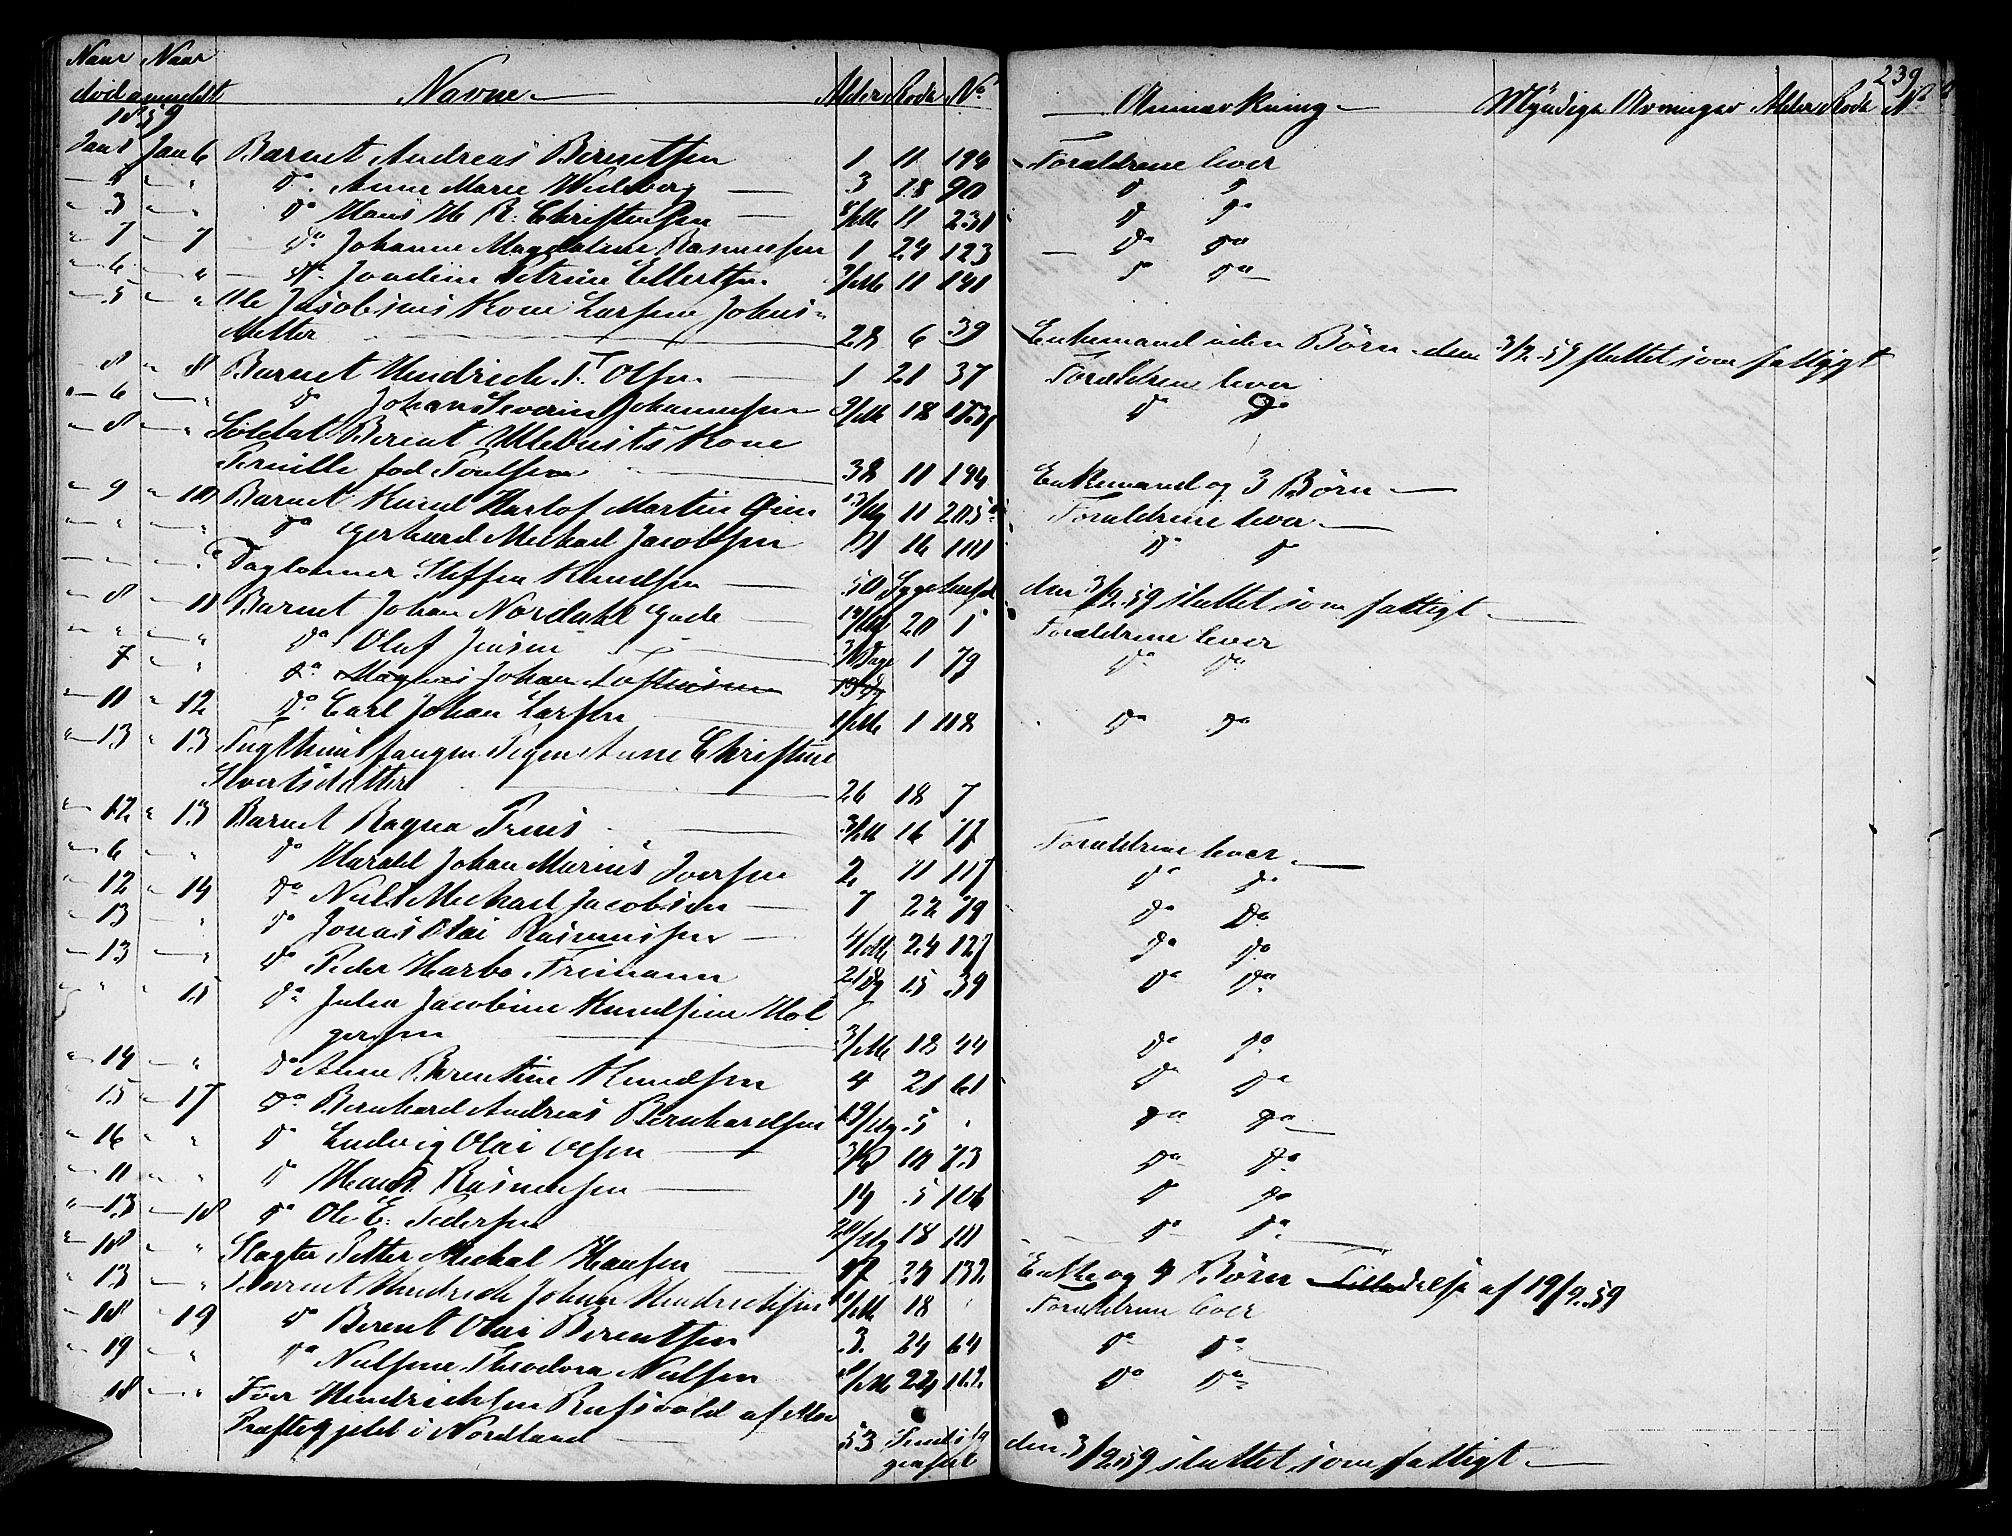 239
Naar Naar
død anmeldt Navne Alder Rode No Anmærkning Myndige Arvinger Alder Rode No
1859
Jan 1 Jan 6 Barnet Andreas Berentsen 1 11 194 Forældrene lever
do Anne Marie Wedberg 3 18 90 do do
3 do Hans M R. Christensen 11 231 do do
7 7 do Johanne Magdalene Rasmussen 1 24 123 do do
6 do Petrine Ellertsen 11 141 do do
5 Ole Jacobsens Kone Larsine Johns=
Metter 28 6 39 Enkemand uden Børn den 3/2 59 sluttet som fattigt
8 8 Barnet Hendrich T. Olsen 1 21 37 Forældrene lever
6 do Johan Severin Johannesen 9/M 18 do do
8 Soldat Berent Kone
Pernille fød Poulsen 38 11 194 Enkemand og 3 Børn
9 10 Barnet Knud Herlof Martin 11 205 Forældrene lever
do Gerhard Mechael Jacobsen 16 101 do do
Daglønner Steffen Knudsen 50 Sygehuset den 3/2 59 sluttet som fattigt
8 11 Barnet Johan Nordahl Gade 14/Dg 20 1 Forældrene lever
do Oluf Jensen Dage 1 79 do do
7 do Magnus Johan
11 12 do Carl Johan Larsen 1 118 do do
13 13 Tugthuusfangen Pigen Anne Christine
Sivertsdatter 26 18 7
12 13 Barnet Ragna Friis 3/M 16 77 Forældrene lever
6 do Harald Johan Marius Iversen 2 11 117 do do
12 14 do Niels Mechael Jacobsen 7 22 79 do do
13 do Jonas Olai Rasmussen 4/M 24 127 do do
13 do Peder Harbo Friemann 21 Dg 15 39 do do
15 do Julia Jacobine Knudsine Hol
gersen 3/M 18 44 do do
14 do Anne Berentine Knudsen 4 21 61 do do
15 17 do Bernhard Andreas Bernhardsen 19/Dg 5 do do
16 do Ludvig Olai Olsen 10 73 do do
11 do Hans Rasmussen 14 5 106 do do
13 18 do Ole E. Pedersen 20/Dg 18 do do
18 Slagter Petter Mechal Hansen 47 24 132 Enke og 4 Børn Tilladelse af 19/2 59
13 Barnet Hendrich Johan Hendrichsen 18 Forældrene lever
18 19 do Berent Olai Berentsen 3 24 64 do do
19 do Nielsine Theodora Nielsen 24 162 do do
18 Iver Hendrichsen af
Præstegjeld i Nordland 53 den 3/2 59 sluttet som fattigt